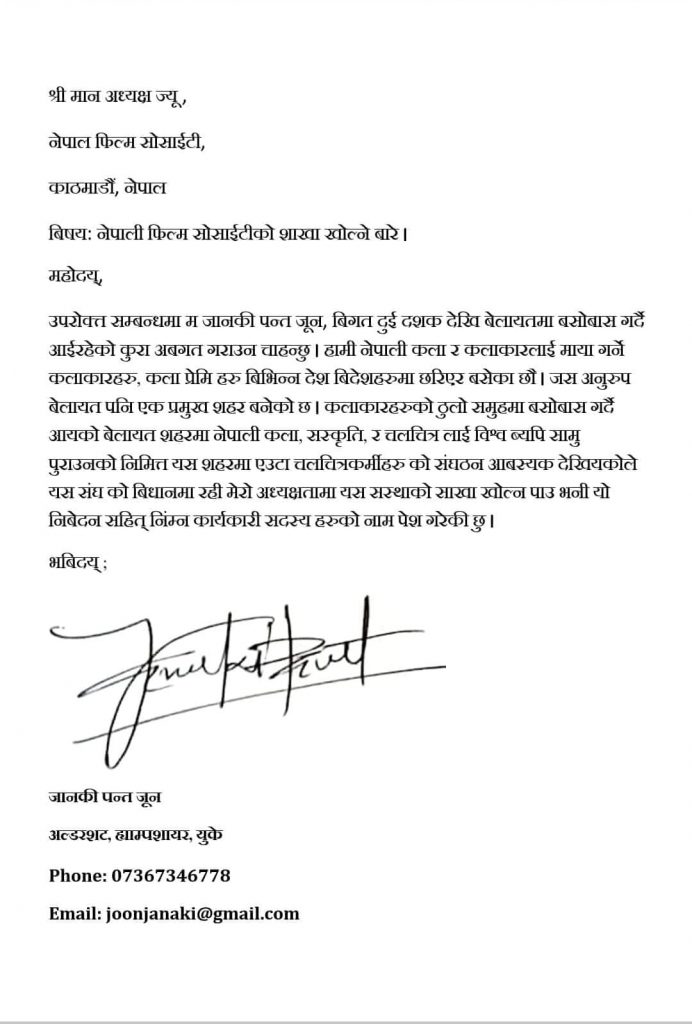 श्री मान अध्यक्ष ज्यू ,
नेपाल फिल्म सोसाईटी,
काठमाडौं, नेपाल
बिषय: नेपाली फिल्म सोसाईटीको शाखा खोल्ने बारे ।
महोदय्,
उपरोक्त सम्बन्धमा म जानकी पन्त जून, बिगत दुई दशक देखि बेलायतमा बसोबास गर्दै
आईरहेको कुरा अबगत गराउन चाहन्छु । हामी नेपाली कला र कलाकारलाई माया गर्ने
कलाकारहरु, कला प्रेमि हरु बिभिन्न देश बिदेशहरुमा छरिएर बसेका छौ । जस अनुरुप
बेलायत पनि एक प्रमुख शहर बनेको छ । कलाकारहरुको ठुलो समुहमा बसोबास गर्दै
आयको बेलायत शहरमा नेपाली कला, सस्कृति, र चलचित्र लाई विश्व ब्यपि सामु
पुराउनको निमित्त यस शहरमा एउटा चलचित्रकर्मीहरु को संघठन आबस्यक देखियकोले
यस संघ को बिधानमा रही मेरो अध्यक्षतामा यस सस्थाको साखा खोल्न पाउ भनी यो
निबेदन सहित् निंम्न कार्यकारी सदस्य हरुको नाम पेश गरेकी छु ।
भबिदय् ;
जानकी पन्त जून
अल्डरशट, ह्याम्पशायर, युके
Phone: 07367346778
Email: joonjanaki@gmail.com